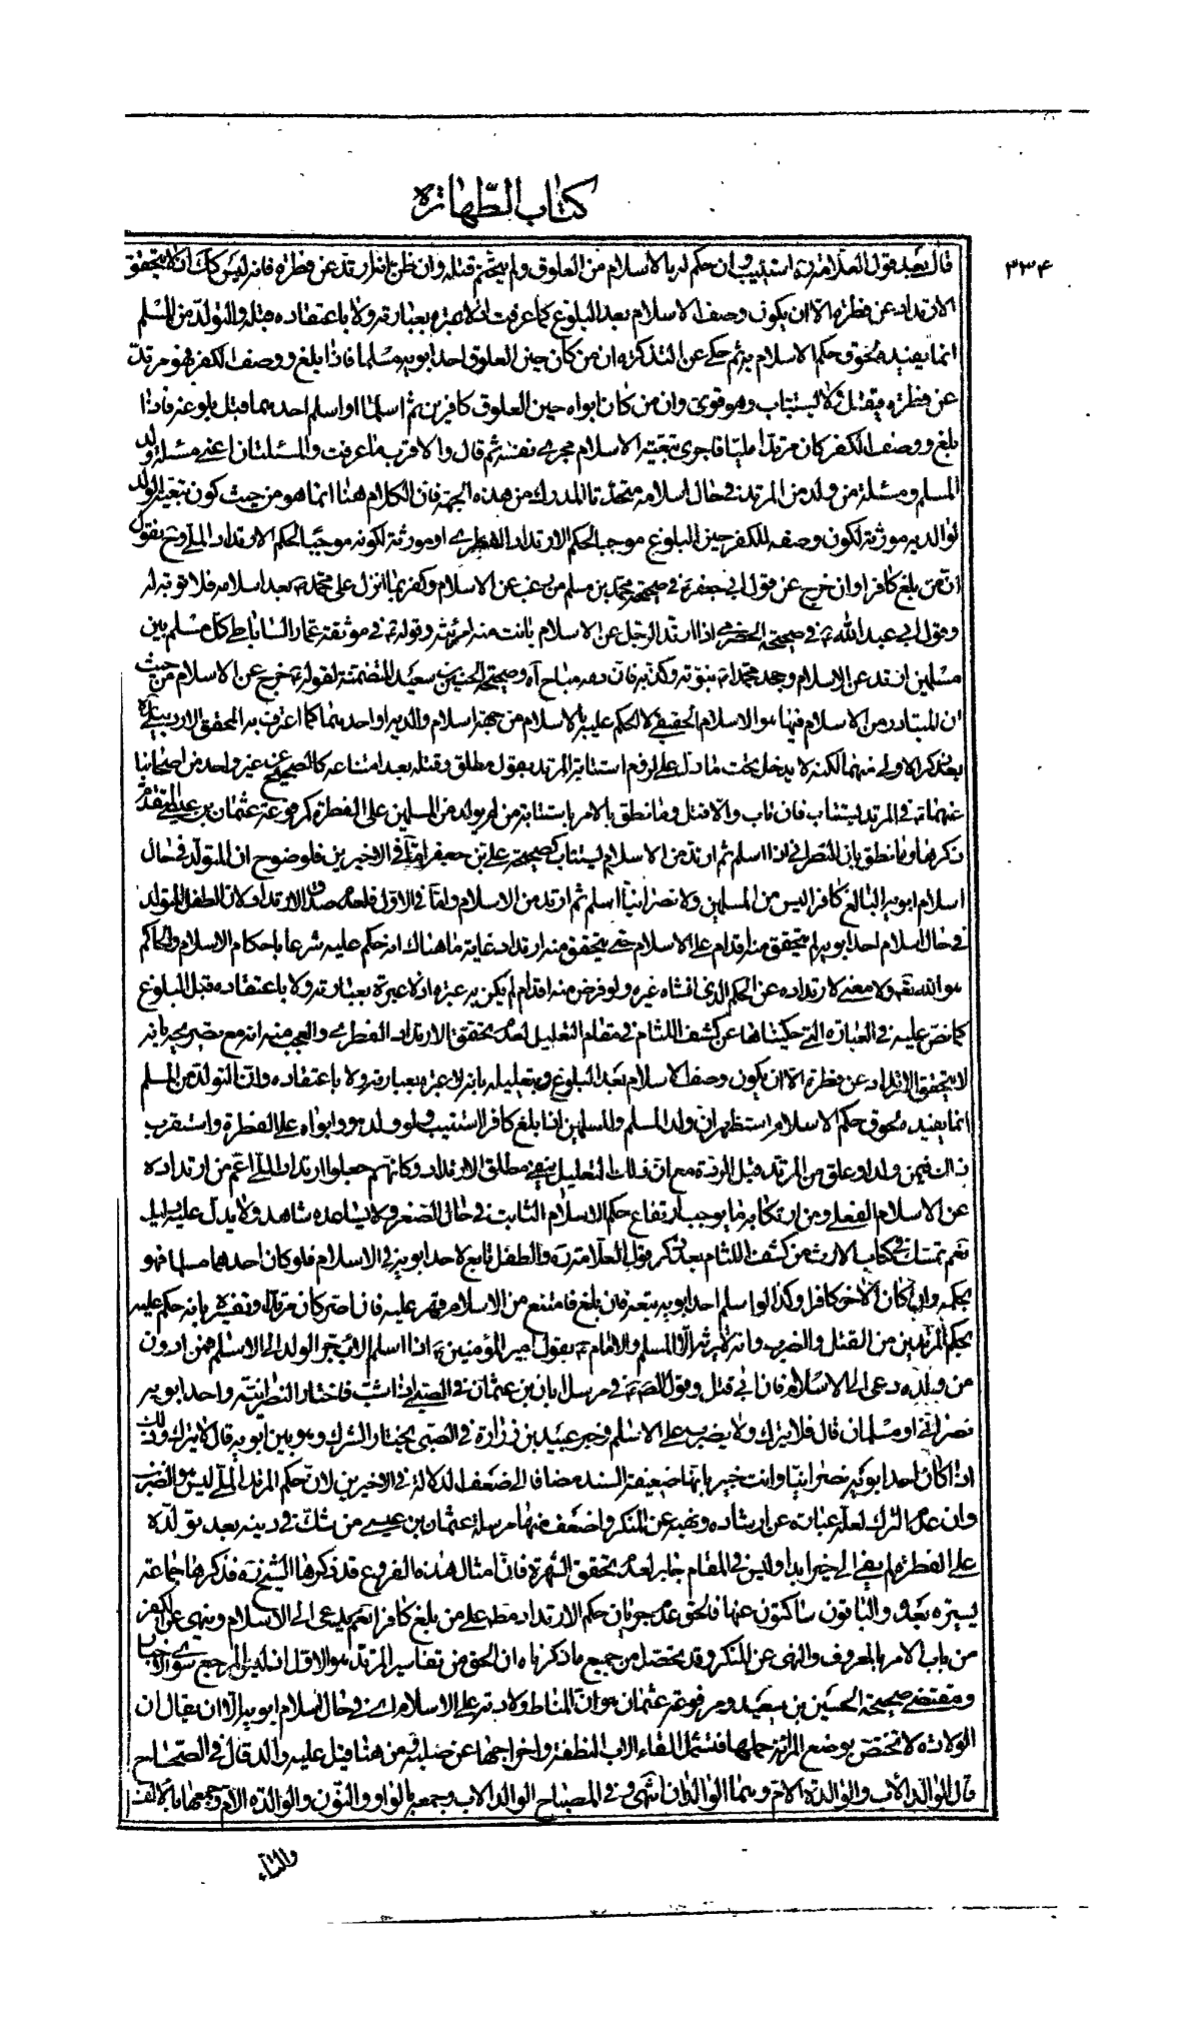 كتاب الطهارة
٣٣٤
قال بعيد قول العلامة ره استتيب وان حكم له بالاسلام من العلوق ولم يتحتم قتله وان ظن انه ارتد عن فطرة فانه ليس كك اذ لا يتحقق
الارتداد عن فطرة الا ان يكون وصف الاسلام بعد البلوغ كما عرفت اذ لا عبرة بعبارته ولا باعتقاده قبله والتولد من المسلم
انما يفيده لحوق حكم الاسلام به ثم حكى عن التذكرة ان من كان حين العلوق احد ابويه مسلما فاذا بلغ ووصف الكفر فهو مرتد
عن فطرة يقتل ولا يستتاب وهو قوى وان من كان ابواه حين العلوق كافرين ثم اسلما او اسلم احدهما قبل بلوغه فاذا
بلغ ووصف الكفر كان مرتدا مليا فاجرى تبعية الاسلام مجرى نفسه ثم قال والاقرب ما عرفت والمسئلتان اعنى مسئلة ولد
المسلم ومسئلة من ولد من المرتد في حال اسلامه متحدتا المدرك من هذه الجهة فان الكلام هنا انما هو من حيث كون تبعية الولد
لوالديه مورثة لكون وصفه للكفر حين البلوغ موجبا لحكم الارتداد الفطرى او مورثة لكونه موجبا لحكم الارتداد الملى وح نقول
ان من بلغ كافرا وان خرج عن قول ابي جعفر ع في صحيحة محمد بن مسلم من رغب عن الاسلام وكفر بما انزل على محمد ص بعد اسلامه فلا توبة له
وقول ابي عبد الله ع في صحيحة الحضرمي اذا ارتد الرجل عن الاسلام بانت منه امرئته وقوله ع في موثقة عمار الساباطي كل مسلم بين
مسلمين ارتد عن الاسلام وجحد محمدا ص نبوته وكذبه فان دمه مباح آه وصحيحة الحسين بن سعيد المتضمنة لقوله ثم خرج عن الاسلام من حيث
ان المتبادر من الاسلام فيها هو الاسلام الحقيقي لا الحكم عليه بالاسلام من جهة اسلام والديه او احدهما كما اعترف به المحقق الاردبيلي ره
بعد ذكر الاولى منهما لكنه لا يدخل تحت ما دل على لزوم استتابة المرتد بقول مطلق وقتله بعد امتناعه كالصحيح عن غير واحد من اصحابنا
عنهما ع في المرتد يستتاب فان تاب والا قتل وما نطق بالامر باستتابة من لم يولد من المسلمين على الفطرة كمرفوعة عثمان بن عيسى المتقدم
ذكرها وما نطق بان النصراني اذا اسلم ثم ارتد من الاسلام يستتاب كصحيحة علي بن جعفر اما في الاخيرين فلوضوح ان المتولد في حال
اسلام ابويه البالغ كافرا ليس من المسلمين ولا نصرانيا اسلم ثم ارتد من الاسلام واما في الاول فلعدم صدق الارتداد لان الطفل المتولد
في حال اسلام احد ابويه لم يتحقق منه اقدام على الاسلام حتى يتحقق منه ارتداد غاية ما هناك انه حكم عليه شرعا باحكام الاسلام والحاكم
هو الله تعالى ولا معنى لارتداده عن الحكم الذى انشاه غيره ولو فرض منه اقدام لم يكن به عبرة اذ لا عبرة بعبارته ولا باعتقاده قبل البلوغ
كما نص عليه في العبارة التي حكيناها عن كشف اللثام في مقام التعليل لعدم تحقق الارتداد الفطرى والعجب منه انه مع تصريحه بانه
لا يتحقق الارتداد عن فطرة الا ان يكون وصف الاسلام بعد البلوغ وتعليله بانه لا عبرة بعبارته ولا باعتقاده وان التولد من المسلم
انما يفيده لحوق حكم الاسلام استظهر ان ولد المسلم والمسلمين اذا بلغ كافرا استتيب ولو ولد هو وابواه على الفطرة واستقرب
ذلك فيمن ولد او علق من المرتد قبل الردة مع ان ذلك التعليل ينفى مطلق الارتداد وكانهم جعلوا ارتداد الملى اعم من ارتداده
عن الاسلام الفعلى ومن ارتكابه ما يوجب ارتفاع حكم الاسلام الثابت في حال الصغر ولا يساعده شاهد ولا يدل عليه دليل
نعم تمسك في كتاب الارث من كشف اللثام بعد ذكر قول العلامة ره والطفل تابع لاحد ابويه في الاسلام فلو كان احدهما مسلما فهو
بحكمه وان كان الاخر كافرا وكذا لو اسلم احد ابويه يتبعه فان بلغ فامتنع من الاسلام قهر عليه فان اصر كان مرتدا وتفسيره بانه حكم عليه
بحكم المرتدين من القتل والضرب وانه لا يرثه الا المسلم والامام ع بقول امير المؤمنين ع اذا اسلم الاب جر الولد الى الاسلام فمن ادرك
من ولده دعى الى الاسلام فان ابى قتل وقول الصادق ع في مرسل ابان بن عثمان في الصبى اذا شب فاختار النصرانية واحد ابويه
نصراني او مسلمان قال فلا يترك ولا يضرب على الاسلام وخبر عبيد بن زرارة في الصبى يختار الشرك وهو بين ابويه قال لا يترك وذلك
اذا كان احد ابويه نصرانيا وانت خبير بانها ضعيفة السند مضافا الى ضعف الدلالة في الاخيرين لان حكم المرتد الملى ليس هو الضرب
وان عدم الترك لعله عبارة عن ارشاده ونهيه عن المنكر واضعف منهما مرسلة عثمان بن عيسى من شك في دينه بعد تولده
على الفطرة لم يفئ الى خير ابدا وليس في المقام جابر لعدم تحقق الشهرة فان امثال هذه الفروع قد ذكرها الشيخ ره فذكرها جماعة
يسيرة بعده والباقون ساكتون عنها فالحق عدم جريان حكم الارتداد مطلقا على من بلغ كافرا نعم يدعى الى الاسلام وينهى عن الكفر
من باب الامر بالمعروف والنهى عن المنكر وقد تحصل من جميع ما ذكرناه ان الحق من تفاسير المرتد هو الاول اذ ليس المرجع سوى الاخبار
ومقتضى صحيحة الحسين بن سعيد ومرفوعة عثمان هو ان المناط ولادته على الاسلام اى في حال اسلام ابويه الا ان يقال ان
الولادة لا تختص بوضع المرئة حملها فتشمل القاء الاب النطفة واخراجها عن صلبه ومن هنا قيل عليه والد قال في الصحاح
قال الوالد الاب والوالدة الام وهما الوالدان انتهى وفي المصباح الوالد الاب وجمعه بالواو والنون والوالدة الام وجمعها بالالف
والتاء